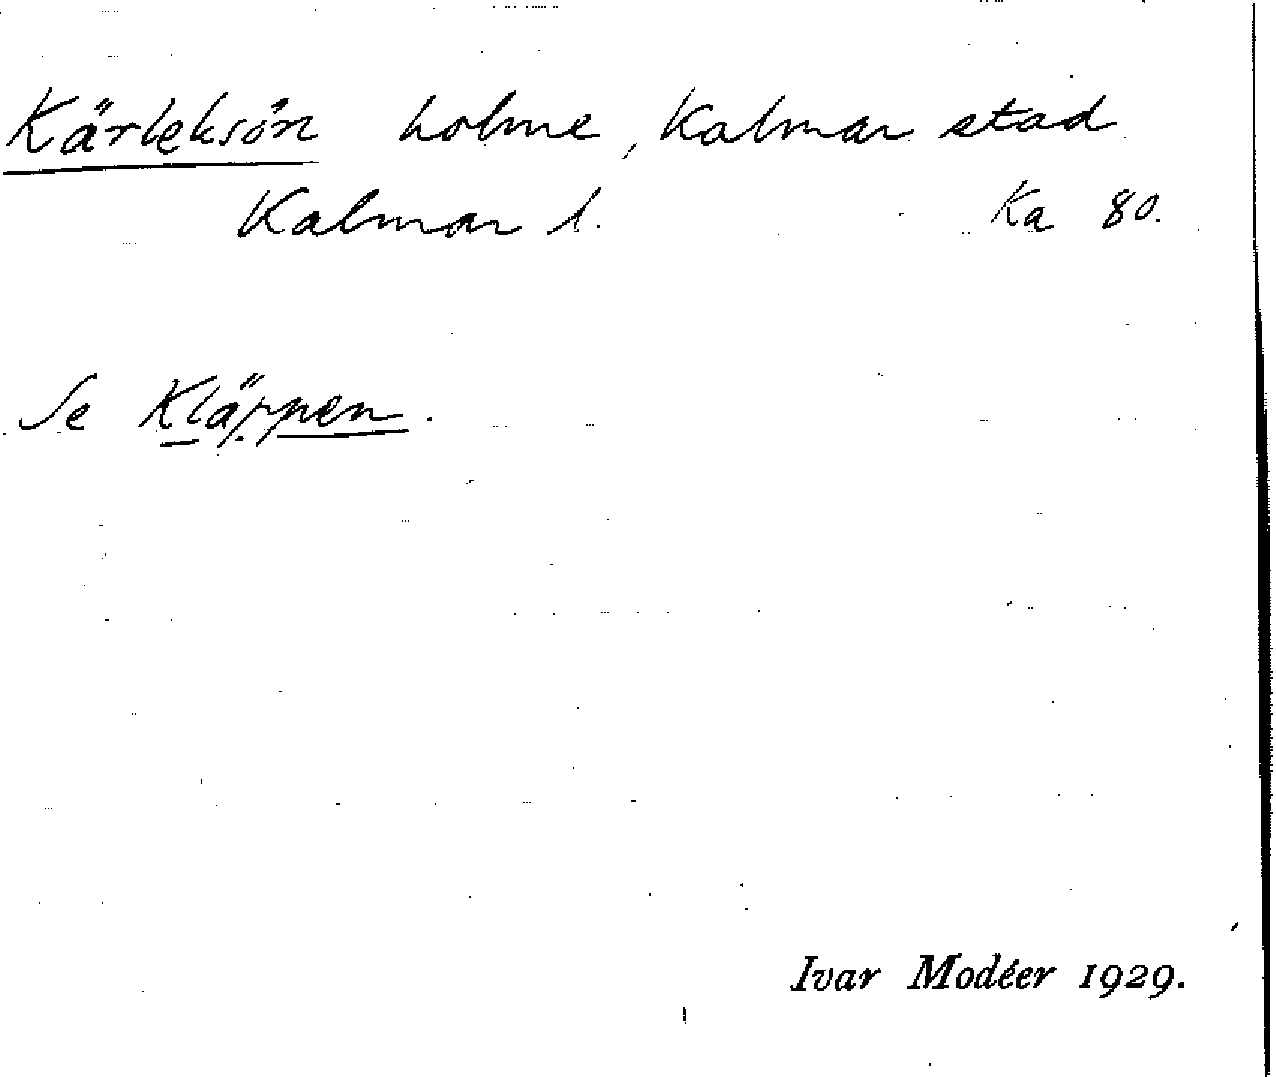 Kärleksön holme, Kalmar stad
Kalmar l. Ka 80.
Se Kläppen.
Ivar Modéer 1929.